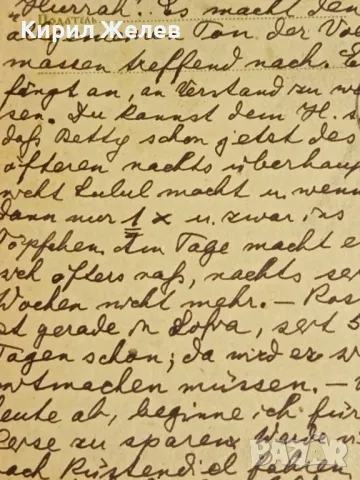 "Hurrah". Es macht den
Ton der
Податель
massen treffend nach.
fängt an, an Verstand zu
sen. Du kannst dem H.
daß Betty schon jetzt des
öfteren nachts überhau
nicht Lulul macht u. wenn
dann nur 1 x u. zwar ins
Töpfchen. Am Tage macht e
sich öfters naß, nachts sei
Wochen nicht mehr. – Ros
ist gerade in Sofia, seit 5
Tagen schon; da wird er
mitmachen müssen. –
heute ab, beginne ich für
Reise zu sparen. Werde
nach Küstendiel fahren
Кирил Желев
bazar